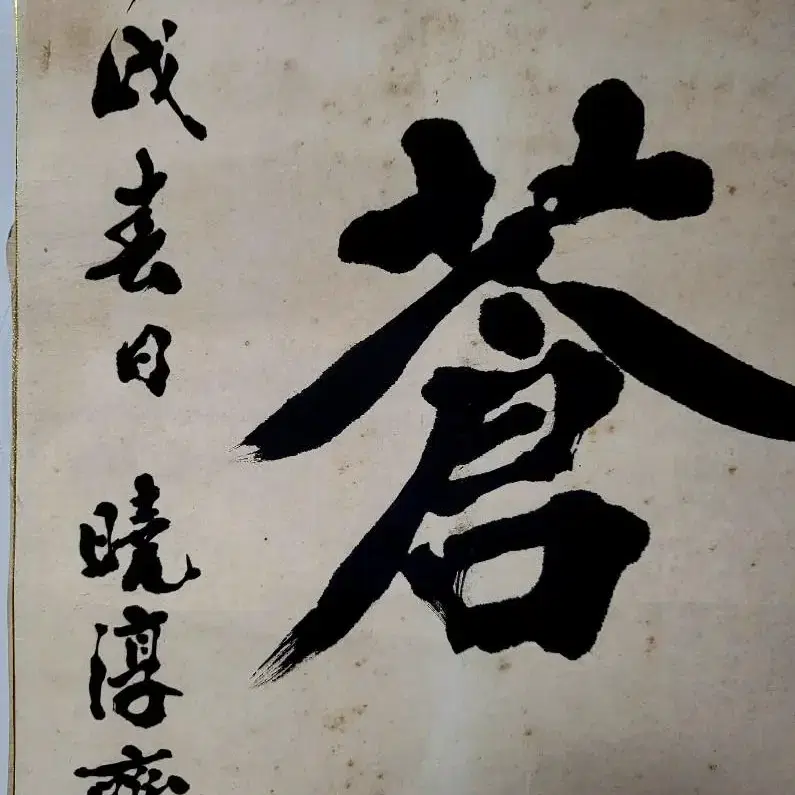 蒼
戌春日 曉淳齋